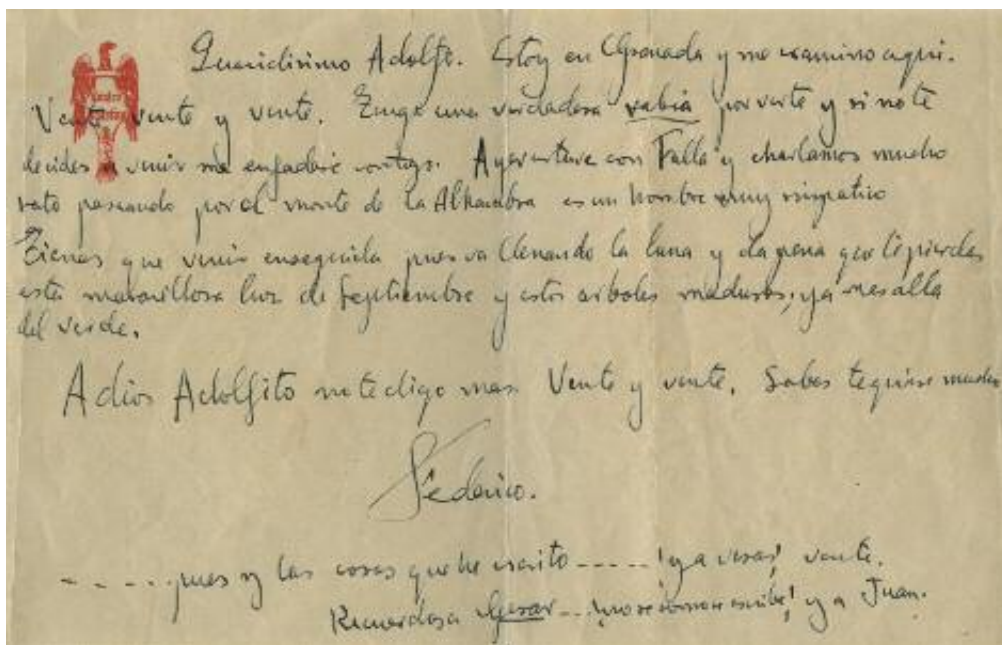 Queridisimo Adolfo. Estoy en Granada y me examino aqui.
Vente vente y vente. Tengo una verdadera rabia por verte y si no te
decides a venir me enfadaré contigo. Ayer estuve con Falla y charlamos mucho
rato paseando por el monte de la Alhambra es un hombre muy simpatico
Tienes que venir enseguida pues va llenando la luna y da pena que te pierdas
esta maravillosa luz de Septiembre y estos arboles maduros, ya mas alla
del verde.
Adios Adolfito no te digo mas Vente y vente. Sabes te quiere mucho
Federico.
- - . - . pues y las cosas que he escrito - - - - - ¡ya veras! vente.
Recuerdos a Cesar - - ¡ como escribe! y a Juan.